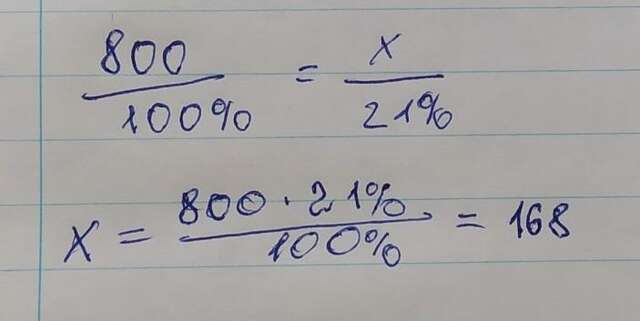 800/100% = x/21%
x = 800 · 21%/100% = 168